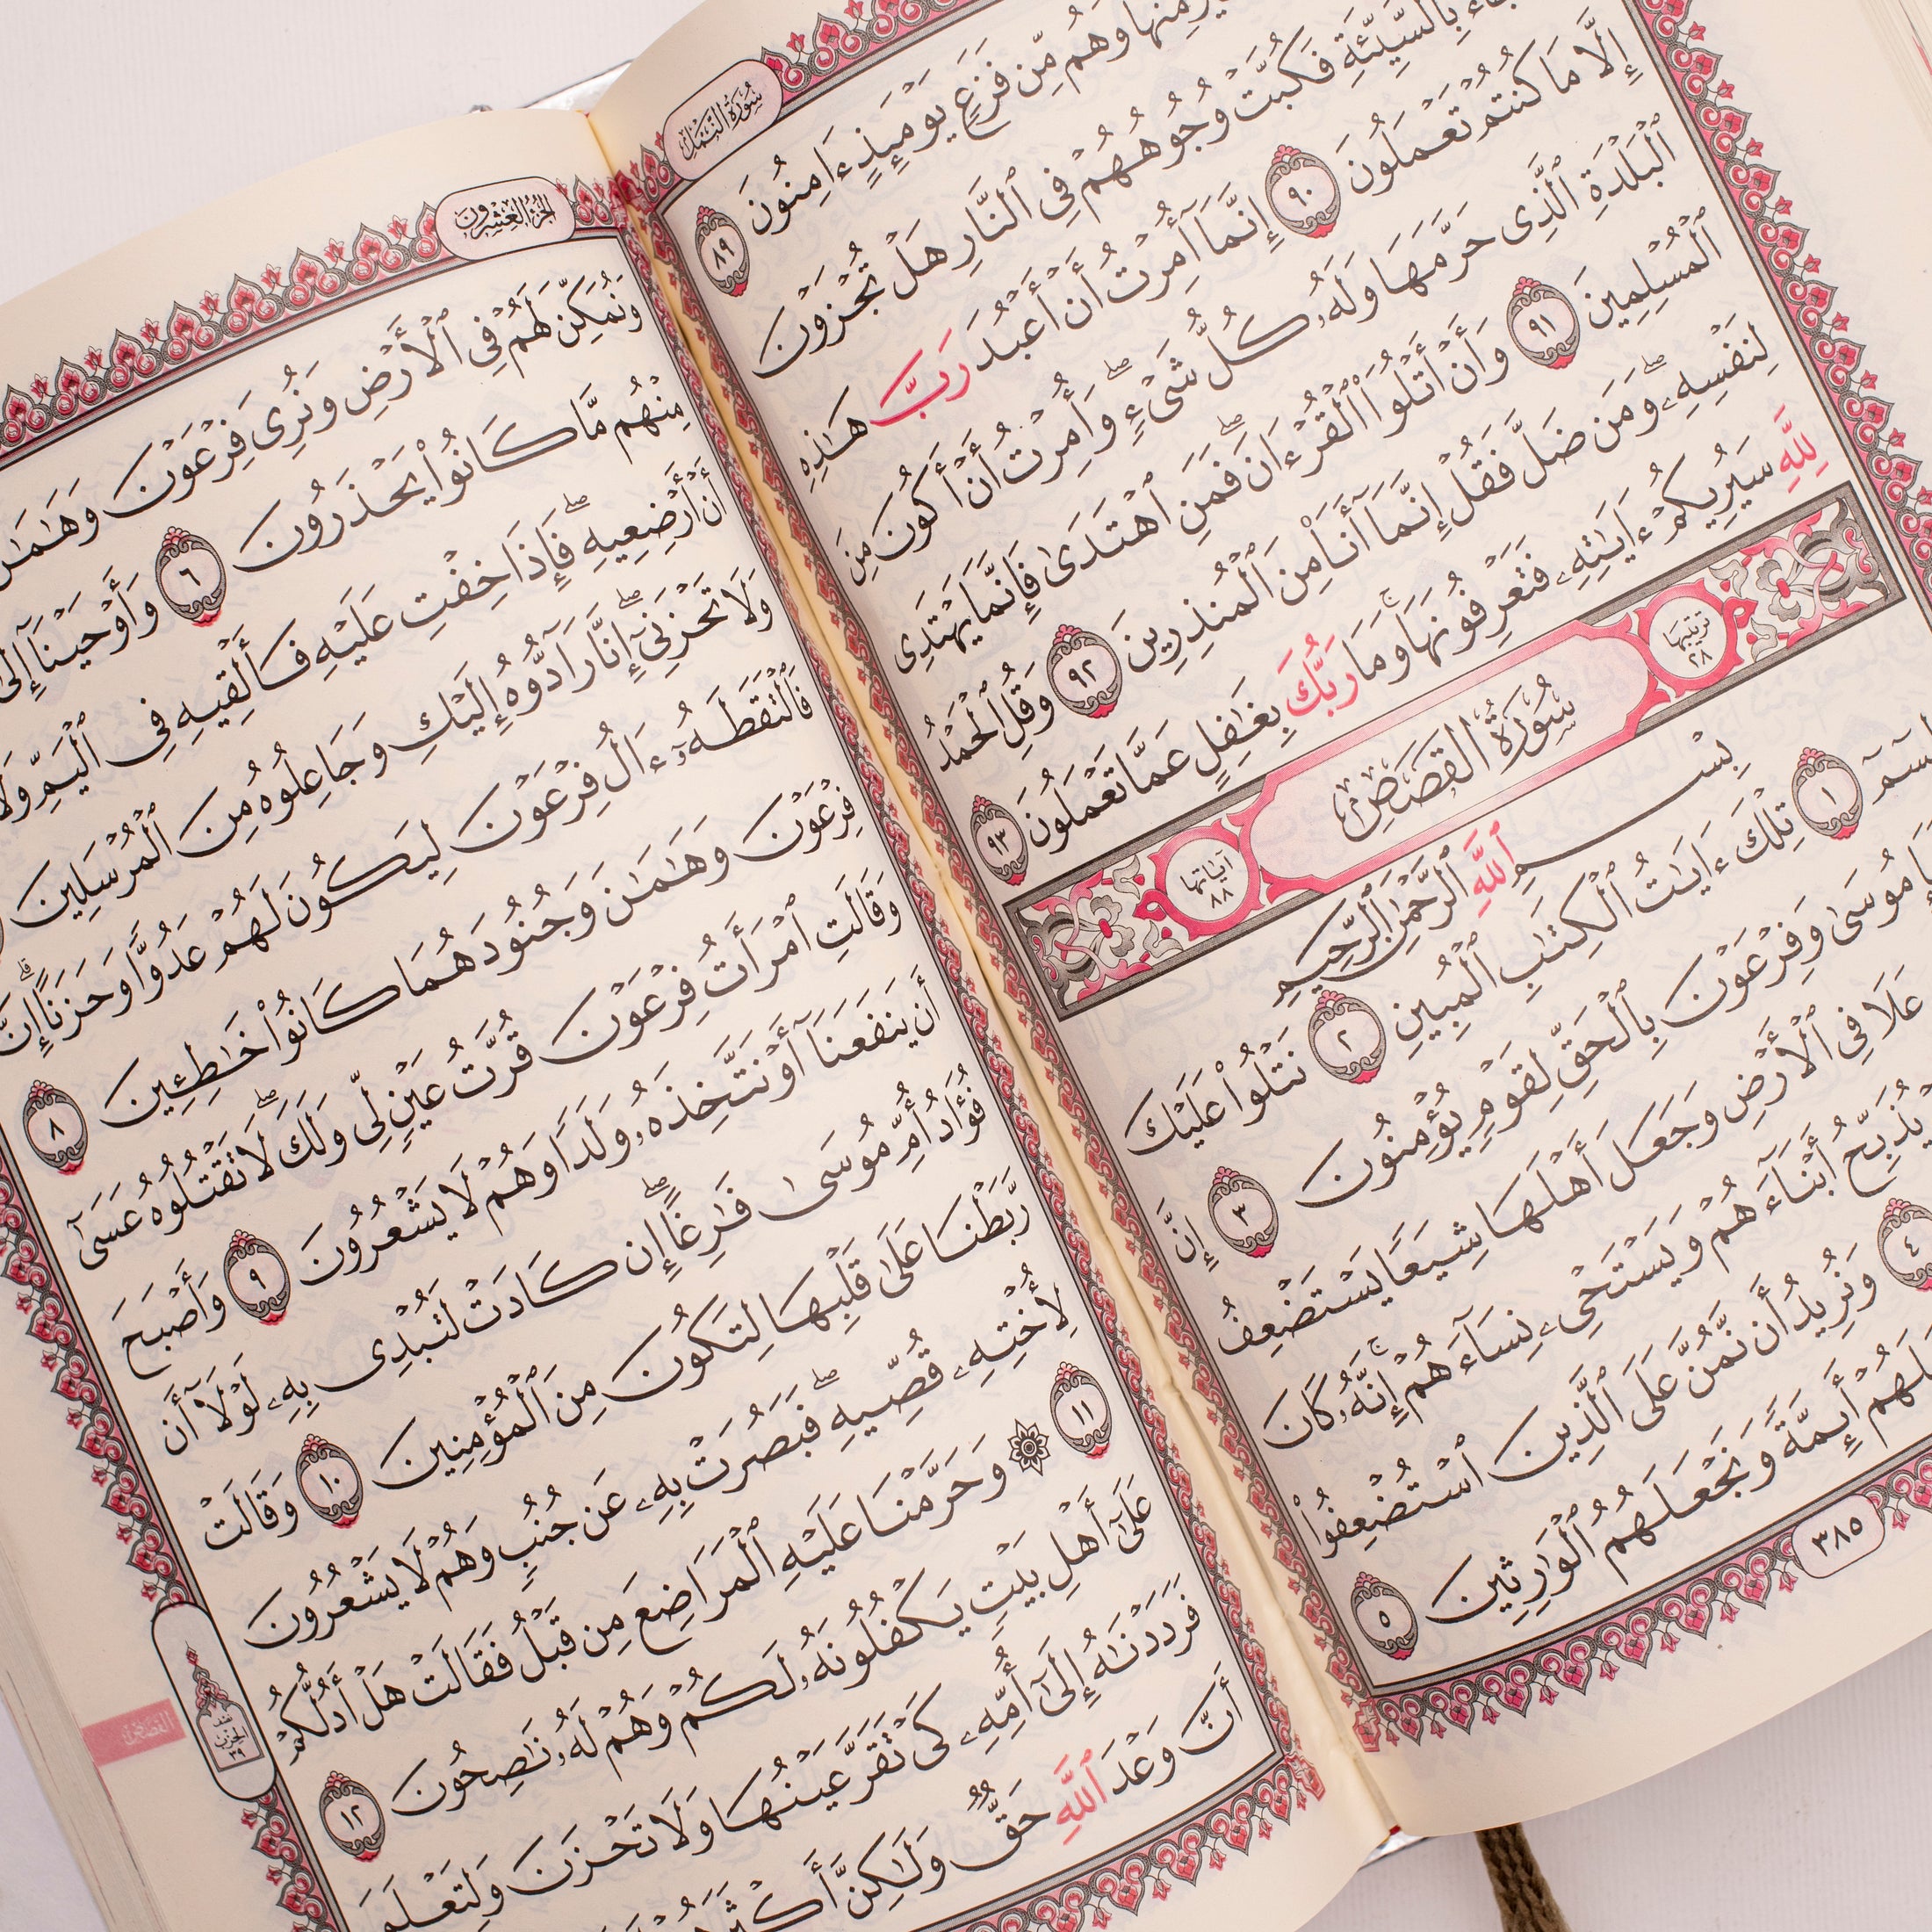 سُورَةُ النَّمۡلِ
مِّنۡهَا وَهُم مِّن فَزَعٍ يَوۡمَئِذٍ ءَامِنُونَ ٨٩
بِٱلسَّيِّئَةِ فَكُبَّتۡ وُجُوهُهُمۡ فِي ٱلنَّارِ هَلۡ تُجۡزَوۡنَ
إِلَّا مَا كُنتُمۡ تَعۡمَلُونَ ٩٠ إِنَّمَآ أُمِرۡتُ أَنۡ أَعۡبُدَ رَبَّ هَٰذِهِ
ٱلۡبَلۡدَةِ ٱلَّذِي حَرَّمَهَا وَلَهُۥ كُلُّ شَيۡءٖۖ وَأُمِرۡتُ أَنۡ أَكُونَ مِنَ
ٱلۡمُسۡلِمِينَ ٩١ وَأَنۡ أَتۡلُوَاْ ٱلۡقُرۡءَانَۖ فَمَنِ ٱهۡتَدَىٰ فَإِنَّمَا يَهۡتَدِي
لِنَفۡسِهِۦۖ وَمَن ضَلَّ فَقُلۡ إِنَّمَآ أَنَا۠ مِنَ ٱلۡمُنذِرِينَ ٩٢ وَقُلِ ٱلۡحَمۡدُ
لِلَّهِ سَيُرِيكُمۡ ءَايَٰتِهِۦ فَتَعۡرِفُونَهَاۚ وَمَا رَبُّكَ بِغَٰفِلٍ عَمَّا تَعۡمَلُونَ ٩٣
ترتيبها ٢٨ سُورَةُ القَصَصِ آياتها ٨٨
بِسۡمِ ٱللَّهِ ٱلرَّحۡمَٰنِ ٱلرَّحِيمِ
طسٓمٓ ١ تِلۡكَ ءَايَٰتُ ٱلۡكِتَٰبِ ٱلۡمُبِينِ ٢ نَتۡلُواْ عَلَيۡكَ
مُوسَىٰ وَفِرۡعَوۡنَ بِٱلۡحَقِّ لِقَوۡمٖ يُؤۡمِنُونَ ٣ إِنَّ
عَلَا فِي ٱلۡأَرۡضِ وَجَعَلَ أَهۡلَهَا شِيَعٗا يَسۡتَضۡعِفُ
يُذَبِّحُ أَبۡنَآءَهُمۡ وَيَسۡتَحۡيِۦ نِسَآءَهُمۡۚ إِنَّهُۥ كَانَ
٤ وَنُرِيدُ أَن نَّمُنَّ عَلَى ٱلَّذِينَ ٱسۡتُضۡعِفُواْ
أَئِمَّةٗ وَنَجۡعَلَهُمُ ٱلۡوَٰرِثِينَ ٥
٣٨٥
الجُزءُ العِشرُونَ
وَنُمَكِّنَ لَهُمۡ فِي ٱلۡأَرۡضِ وَنُرِيَ فِرۡعَوۡنَ وَهَٰمَٰنَ
مِنۡهُم مَّا كَانُواْ يَحۡذَرُونَ ٦ وَأَوۡحَيۡنَآ إِلَىٰٓ
أَنۡ أَرۡضِعِيهِۖ فَإِذَا خِفۡتِ عَلَيۡهِ فَأَلۡقِيهِ فِي ٱلۡيَمِّ وَلَا
وَلَا تَحۡزَنِيٓۖ إِنَّا رَآدُّوهُ إِلَيۡكِ وَجَاعِلُوهُ مِنَ ٱلۡمُرۡسَلِينَ
فَٱلۡتَقَطَهُۥٓ ءَالُ فِرۡعَوۡنَ لِيَكُونَ لَهُمۡ عَدُوّٗا وَحَزَنًاۗ إِنَّ
فِرۡعَوۡنَ وَهَٰمَٰنَ وَجُنُودَهُمَا كَانُواْ خَٰطِـِٔينَ ٨
وَقَالَتِ ٱمۡرَأَتُ فِرۡعَوۡنَ قُرَّتُ عَيۡنٖ لِّي وَلَكَۖ لَا تَقۡتُلُوهُ عَسَىٰٓ
أَن يَنفَعَنَآ أَوۡ نَتَّخِذَهُۥ وَلَدٗا وَهُمۡ لَا يَشۡعُرُونَ ٩ وَأَصۡبَحَ
فُؤَادُ أُمِّ مُوسَىٰ فَٰرِغًاۖ إِن كَادَتۡ لَتُبۡدِي بِهِۦ لَوۡلَآ أَن
رَّبَطۡنَا عَلَىٰ قَلۡبِهَا لِتَكُونَ مِنَ ٱلۡمُؤۡمِنِينَ ١٠ وَقَالَتۡ
لِأُخۡتِهِۦ قُصِّيهِۖ فَبَصُرَتۡ بِهِۦ عَن جُنُبٖ وَهُمۡ لَا يَشۡعُرُونَ
١١ ۞ وَحَرَّمۡنَا عَلَيۡهِ ٱلۡمَرَاضِعَ مِن قَبۡلُ فَقَالَتۡ هَلۡ أَدُلُّكُمۡ
عَلَىٰٓ أَهۡلِ بَيۡتٖ يَكۡفُلُونَهُۥ لَكُمۡ وَهُمۡ لَهُۥ نَٰصِحُونَ ١٢
فَرَدَدۡنَٰهُ إِلَىٰٓ أُمِّهِۦ كَيۡ تَقَرَّ عَيۡنُهَا وَلَا تَحۡزَنَ وَلِتَعۡلَمَ
أَنَّ وَعۡدَ ٱللَّهِ حَقّٞ وَلَٰكِنَّ
الحزب ٣٩
القصص